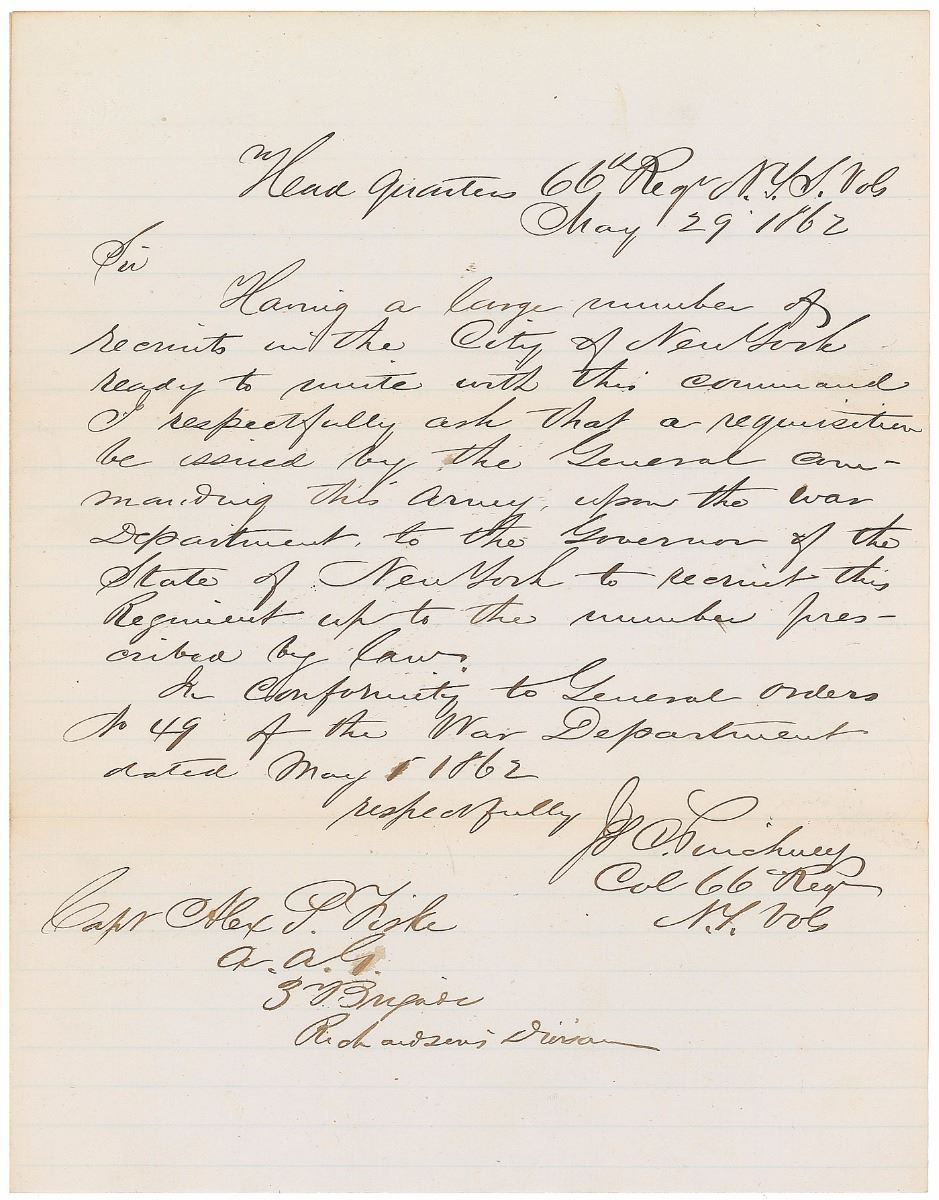 Head Quarters 66th Regt N.Y.S. Vols
May 29 1862
Sir
Having a large number of
recruits in the City of New York
ready to unite with this command
I respectfully ask that a requisition
be issued by the General com-
manding this Army, upon the War
Department, to the Governor of the
State of New York to recruit this
Regiment up to the number pres-
cribed by law.
In Conformity to General orders
No 49 of the War Department
dated May 1862
respectfully
J. C. Pinckney
Col 66 Regt
N.Y. Vols
Capt Alex P. Fiske
A. A. G.
3d Brigade
Richardson's Division